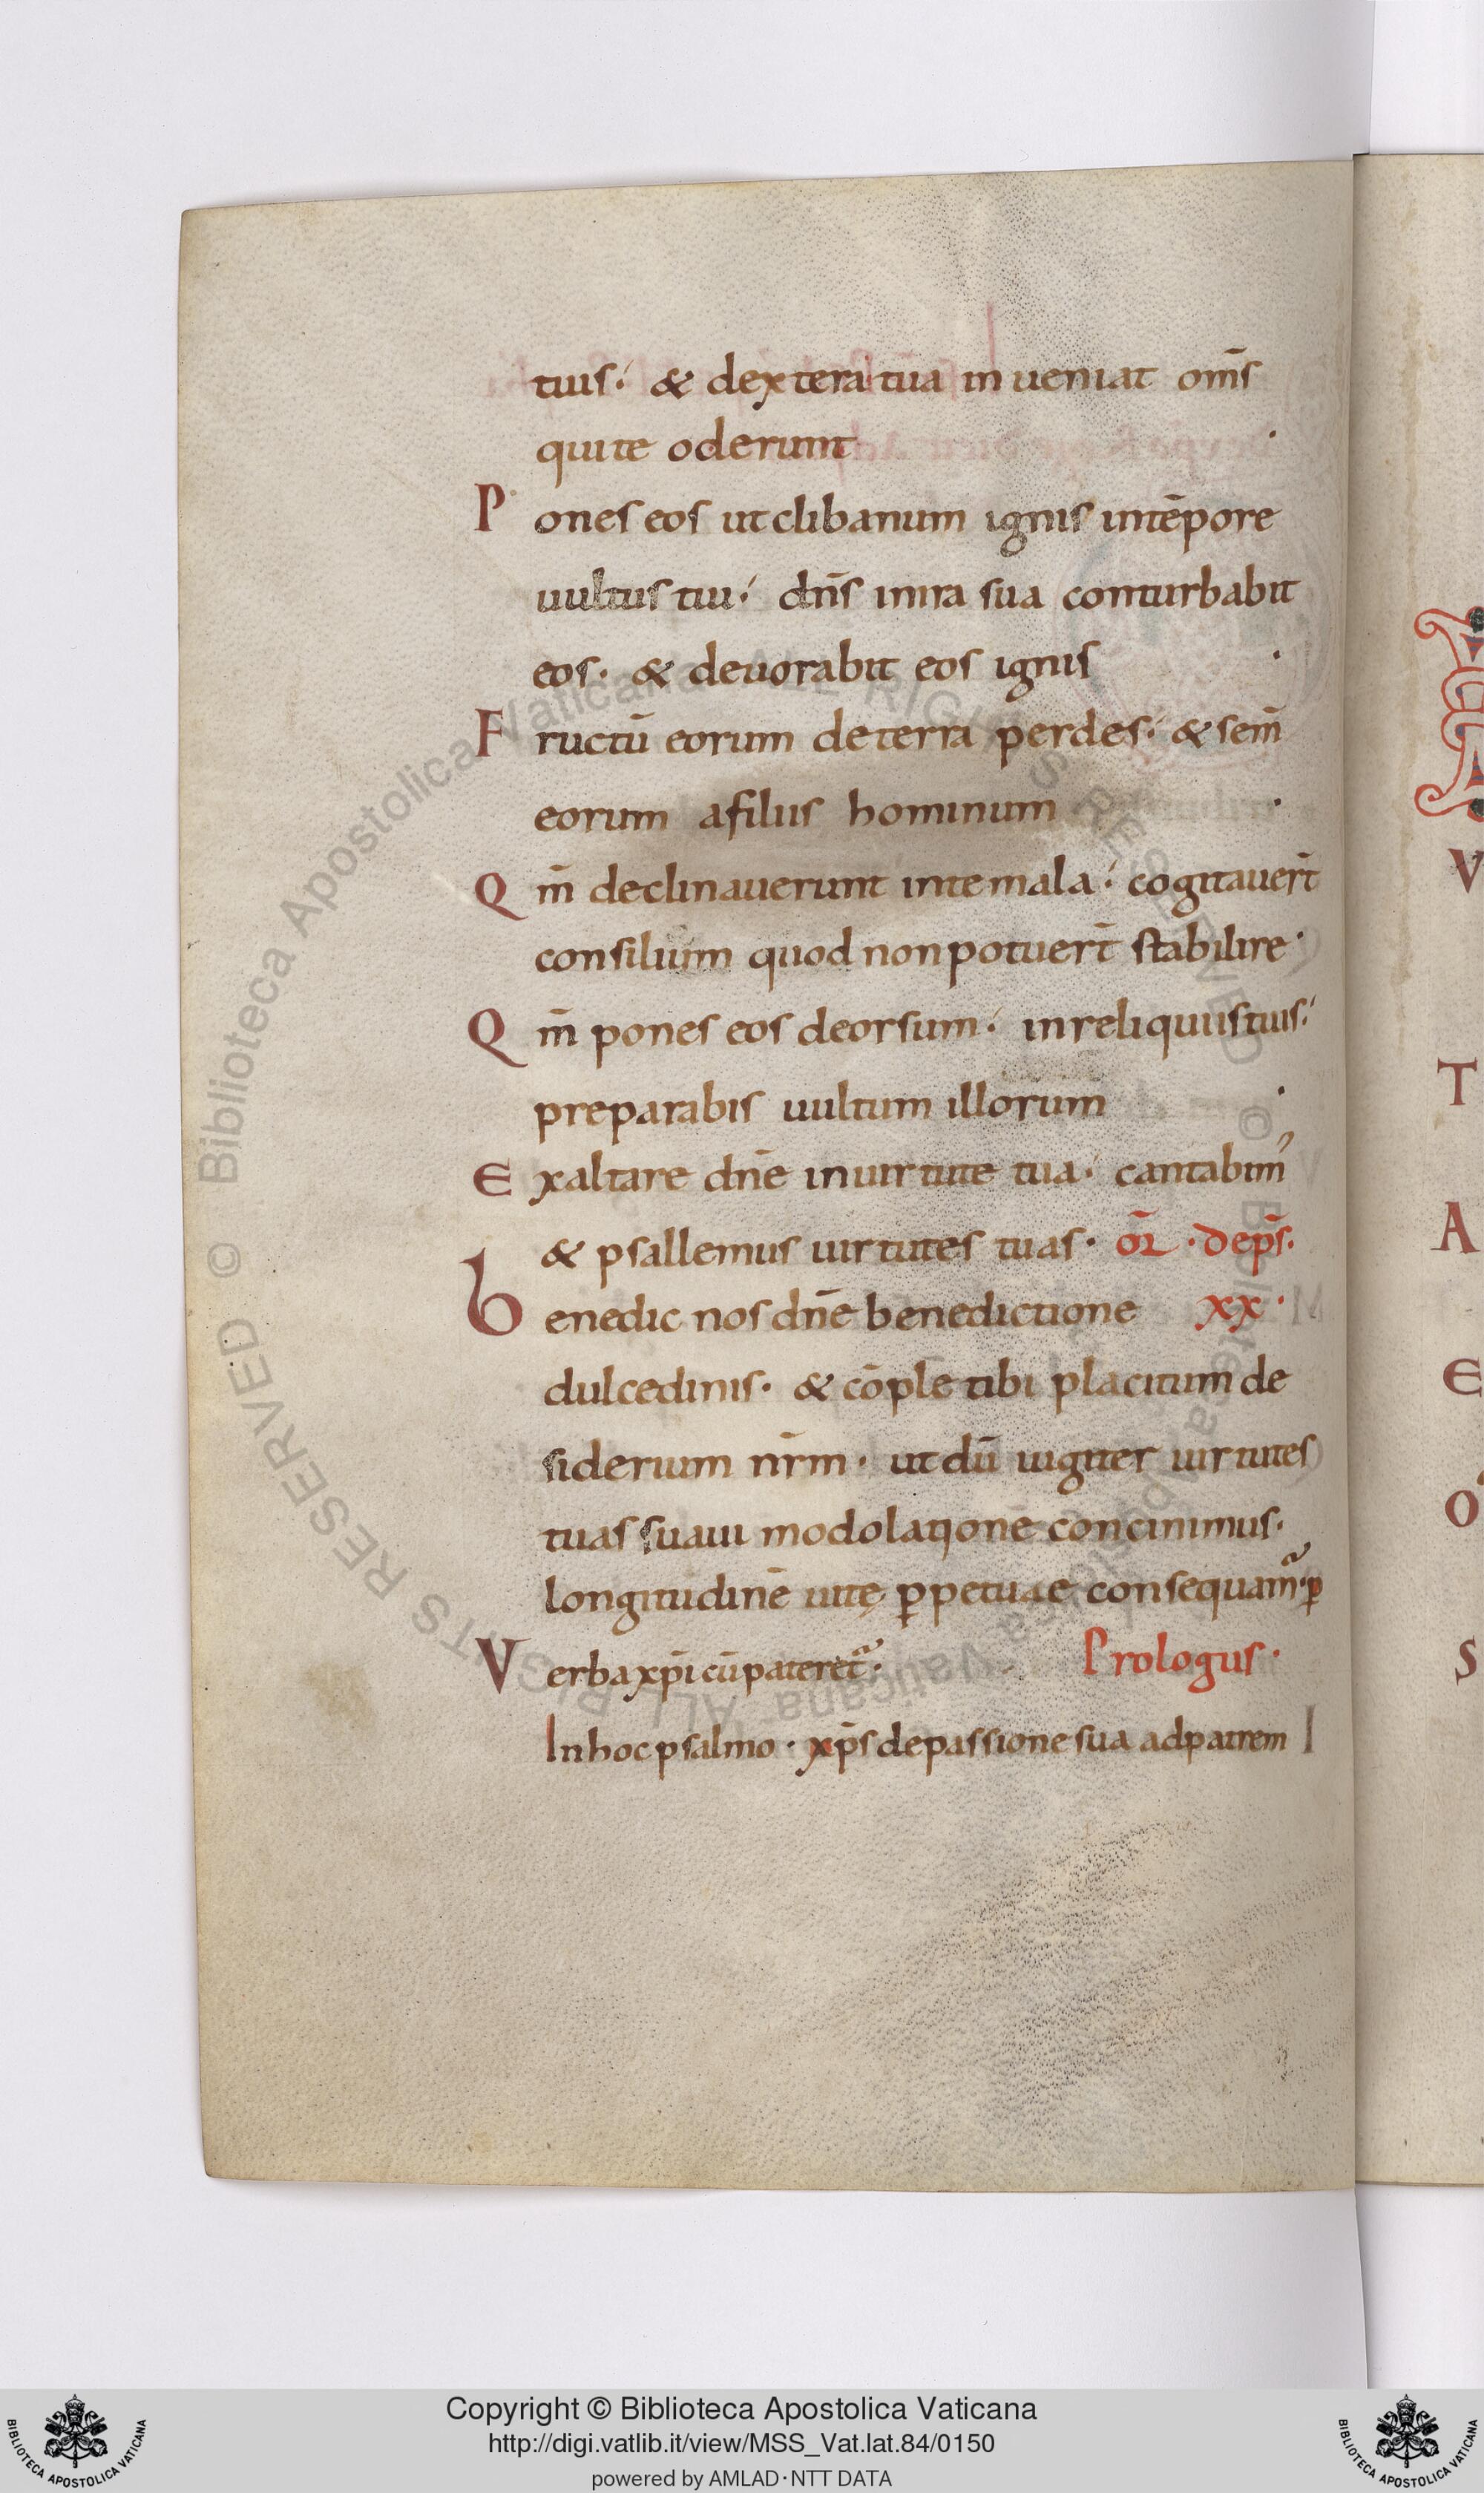 tuis· & dextera tua inueniat om̄s
qui te oderunt ·
Pones eos ut clibanum ignis in tēpore
uultus tui· dn̄s in ira sua conturbabit
eos· & deuorabit eos ignis ·
Fructū eorum de terra perdes· & sem̄
eorum a filiis hominum ·
Qm̄ declinauerunt in te mala· cogitauer̄t
consilium quod non potuer̄t stabilire·
Qm̄ pones eos deorsum· in reliquiis tuis·
preparabis uultum illorum ·
Exaltare dn̄e in uirtute tua· cantabim᾿
& psallemus uirtutes tuas· or̄ · de ps̄·
Benedic nos dn̄e benedictione xx·
dulcedinis· & cōple tibi placitum de
siderium nr̄m· ut dū uigiter uirtutes
tuas suaui modolatione concinimus·
longitudinē uitę ꝑpetuae consequam᷑·ꝑ
Verba xp̄i cū pateret᷑· Prologus·
In hoc psalmo· xp̄s de passione sua ad patrem I
Copyright © Biblioteca Apostolica Vaticana
http://digi.vatlib.it/view/MSS_Vat.lat.84/0150
powered by AMLAD·NTT DATA
BIBLIOTECA APOSTOLICA VATICANA
BIBLIOTECA APOSTOLICA VATICANA
© Biblioteca Apostolica Vaticana ALL RIGHTS RESERVED © Biblioteca Apostolica Vaticana ALL RIGHTS RESERVED
V
T
A
E
O
S